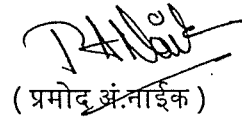 ( प्रमोद अं.नाईक )